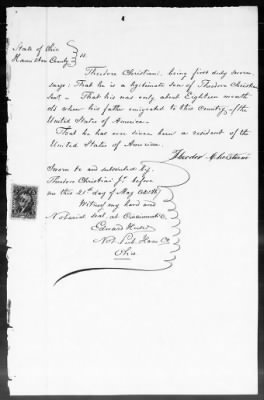 State of Ohio
Hamilton County } ss
Theodore Christiani, being first duly sworn
says: That he is a legitimate son of Theodore Christiani
That he was only about Eighteen month
old when his father emigrated to this country, the
United States of America.
That he has ever since been a resident of the
United States of America.
Theodor Christiani
Sworn to and subscribed by
Theodore Christiani Jr. before
me this 21st day of May
Witness my hand and
Notarial seal at Cincinnati O.
Edward
Not. Pub. Ham Co.
Ohio